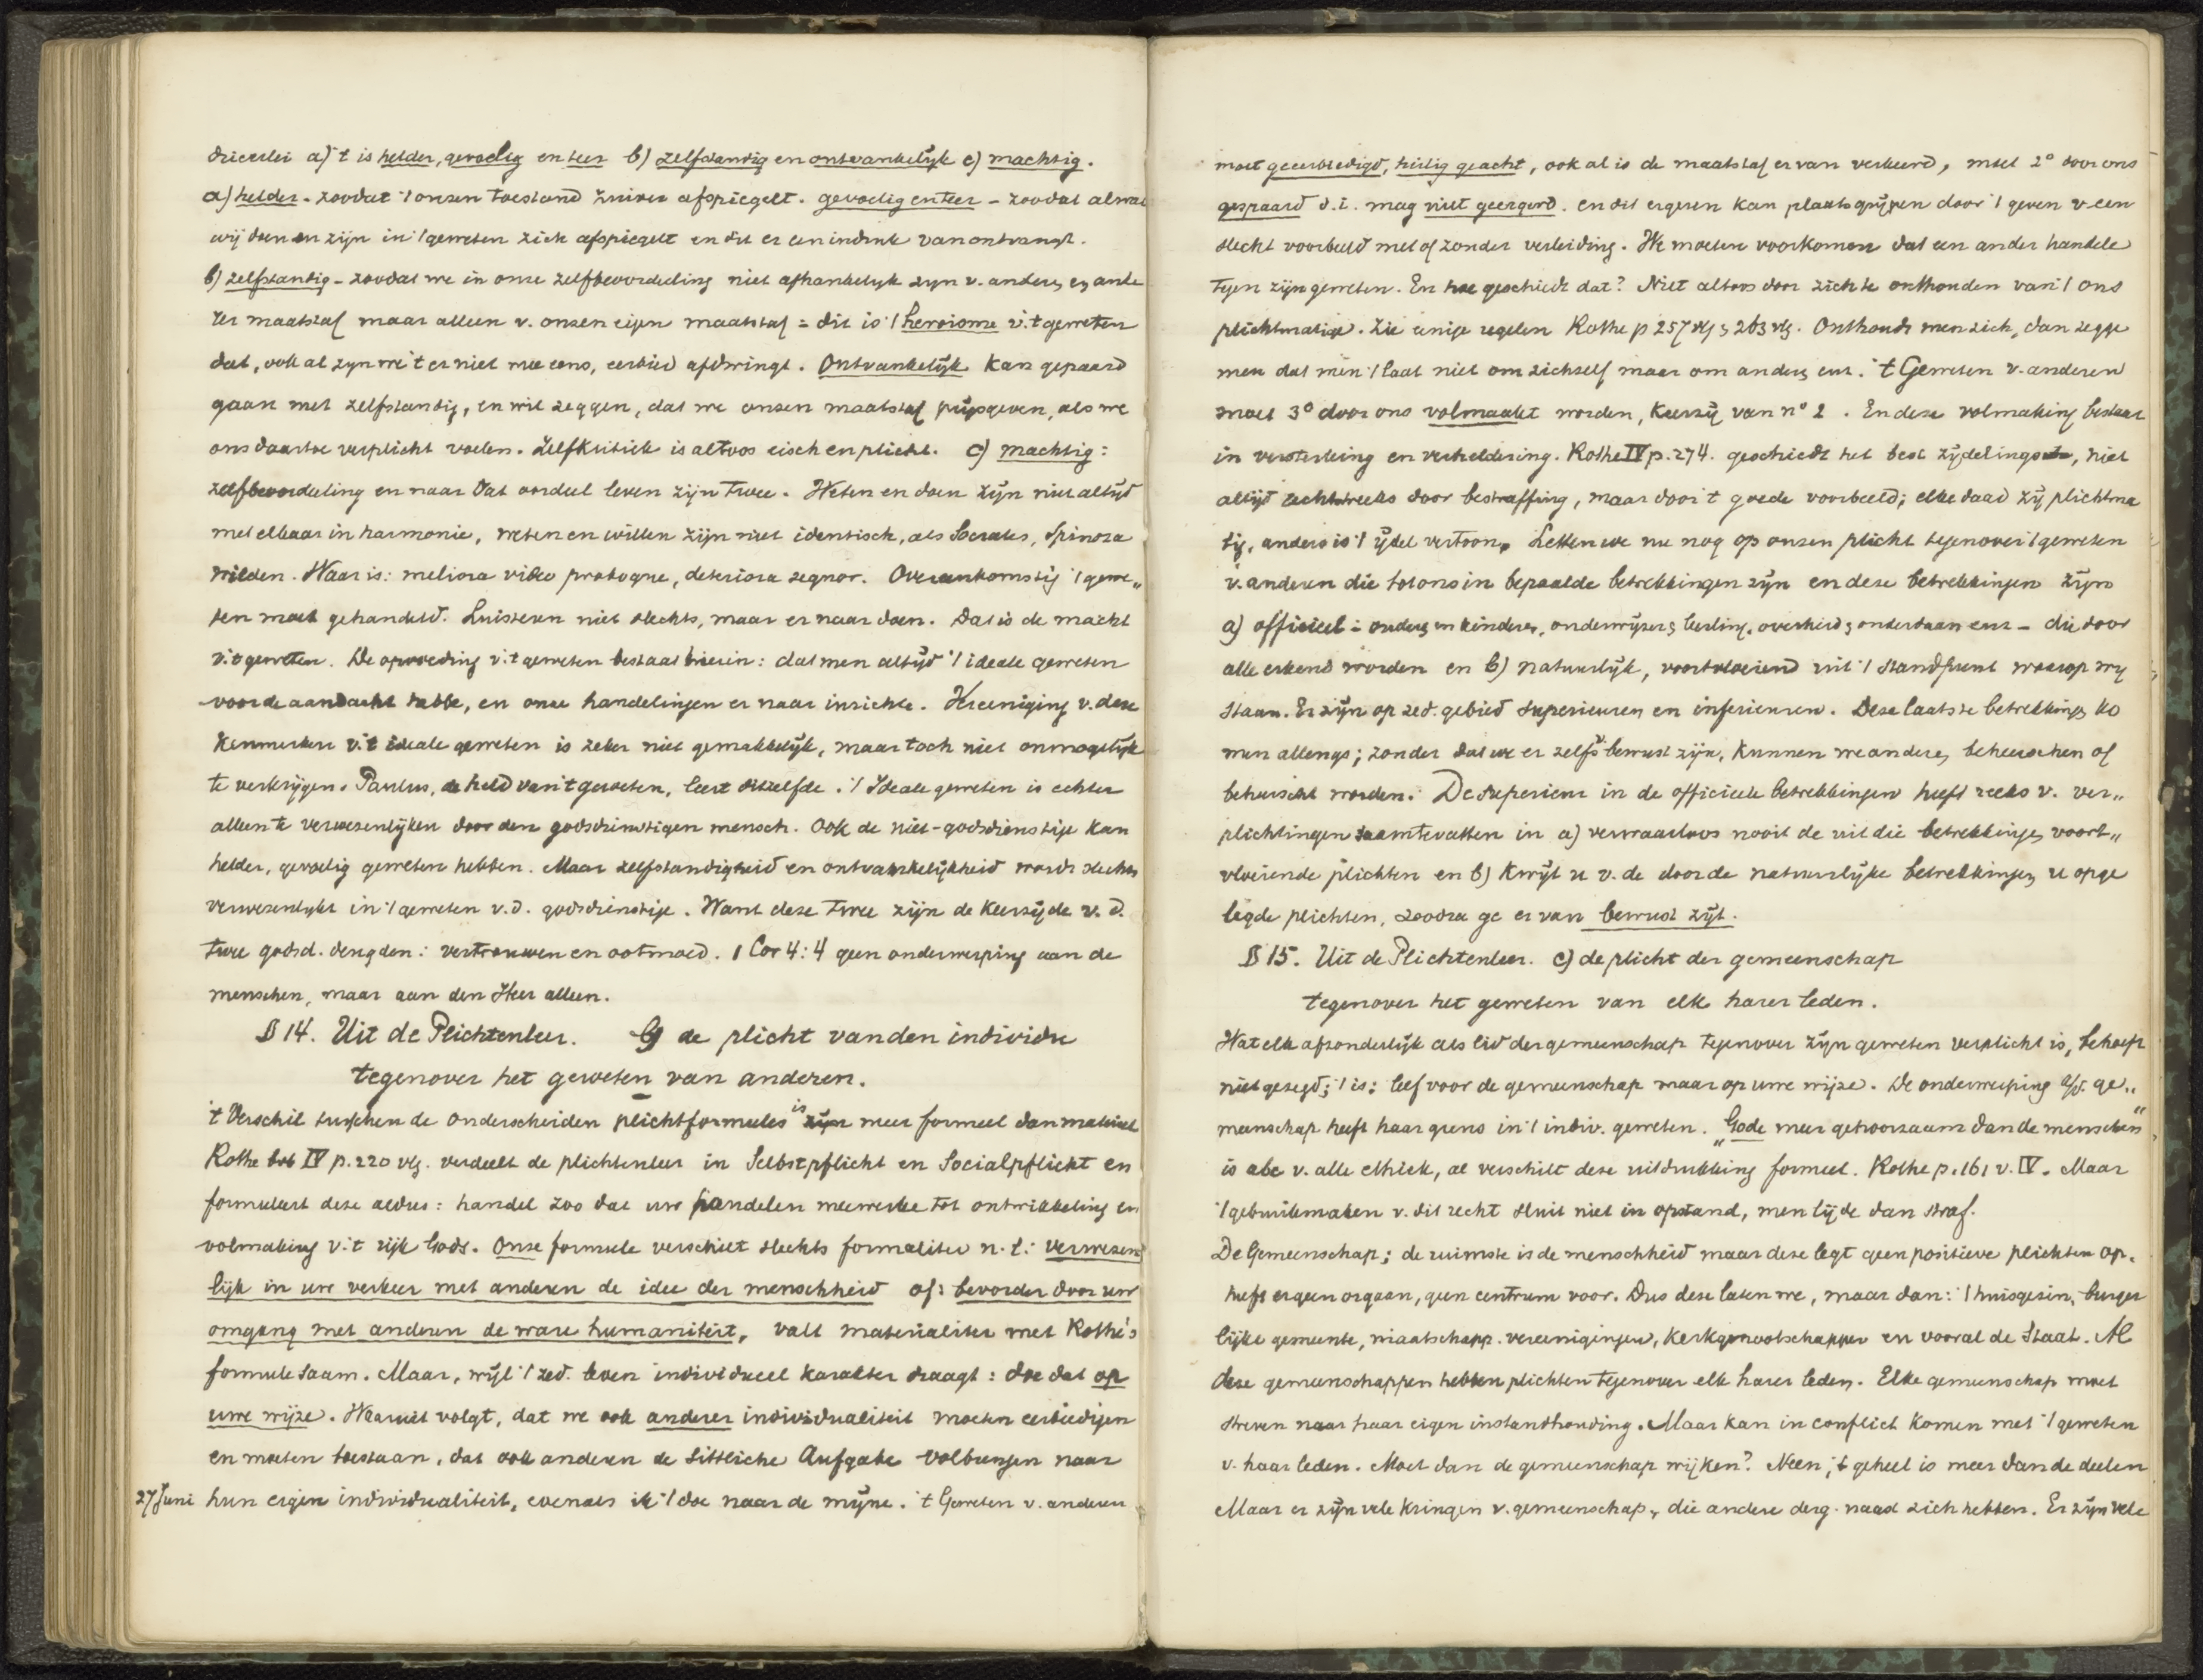 driëerlei a) 't is helder, gevoelig en teer b) zelfstandig en ontvankelijk c) machtig.
a) helder - zoodat 't onzen toestand zuiver afspiegelt. gevoelig en teer - zoodat al wat
wij doen en zijn in 't geweten zich afspiegelt en dit er een indruk van ontvangt.
b) zelfstandig - zoodat we in onze zelfbeoordeeling niet afhankelijk zyn v. anderen en ande
rer maatstaf maar alleen v. onzen eigen maatstaf = dit is 't heroisme v. 't geweten
dat, ook al zyn we 't er niet mee eens, eerbied afdwingt. Ontvankelijk kan gepaard
gaan met zelfstandig, en wil zeggen, dat we onzen maatstaf prijsgeven, als we
ons daartoe verplicht voelen. Zelfkritiek is altoos eisch en plicht. c) machtig:
zelfbeoordeeling en naar dat oordeel leven zijn twee. Weten en doen zijn niet altijd
met elkaar in harmonie, weten en willen zijn niet identisch, als Socrates, Spinoza
wilden. Waar is: meliora video proboque, deteriora sequor. Overeenkomstig 't gewe„
ten moet gehandeld. Luisteren niet slechts, maar er naar doen. Dat is de macht
v. 't geweten. De opvoeding v. 't geweten bestaat hierin: dat men altijd 't ideale geweten
voor de aandacht hebbe, en onze handelingen er naar inrichte. Vereeniging v. deze
kenmerken v. 't ideale geweten is zeker niet gemakkelijk, maar toch niet onmogelijk
te verkrijgen. Paulus, de held van 't geweten, leert ditzelfde. 't Ideale geweten is echter
alleen te verwezenlijken door den godsdienstigen mensch. Ook de niet-godsdienstige kan
helder, gevoelig geweten hebben. Maar zelfstandigheid en ontvankelijkheid wordt slechts
verwezenlijkt in 't geweten v. d. godsdienstige. Want deze twee zijn de keerzijde v. d.
twee godsd. deugden: vertrouwen en ootmoed. 1 Cor 4:4 geen onderwerping aan de
menschen, maar aan den Heer alleen.
§ 14. Uit de Plichtenleer. b) de plicht van den individu
tegenover het geweten van anderen.
't Verschil tusschen de onderscheiden plichtformules is zijn meer formeel dan materieel
Rothe IV p. 220 vlg. verdeelt de plichtenleer in Selbstpflicht en Socialpflicht en
formuleert deze aldus: handel zoo dat uw handelen meewerke tot ontwikkeling en
volmaking v. 't rijk Gods. Onze formule verschilt slechts formaliter n.l: verwezen
lijk in uw verkeer met anderen de idee der menschheid of: bevorder door uw
omgang met anderen de ware humaniteit, valt materialiter met Rothe's
formule saam. Maar, wijl 't zed. leven individueel karakter draagt: doe dat op
uwe wijze. Waaruit volgt, dat we ook anderer individualiteit moeten eerbiedigen
en moeten toestaan, dat ook anderen de sittliche Aufgabe volbrengen naar
27 Juni hun eigen individualiteit, evenals ik 't doe naar de mijne. 't Geweten v. anderen
moet geeerbiedigd, heilig geacht, ook al is de maatstaf er van verkeerd, moet 2° door ons
gespaard d.i. mag niet geërgerd. en dit ergeren kan plaatsgrijpen door 't geven v. een
slecht voorbeeld met of zonder verleiding. We moeten voorkomen dat een ander handele
tegen zijn geweten. En hoe geschiedt dat? Niet altoos door zich te onthouden van 't ons
plichtmatige. Zie enige regelen Rothe p 257 vlg, 263 vlg. Onthoudt men zich, dan zegge
men dat men 't laat niet om zichzelf maar om anderen enz. 't Geweten v. anderen
moet 3° door ons volmaakt worden, keerzij van n° 2. En deze volmaking bestaat
in versterking en verheldering. Rothe IV p. 274. geschiedt het best zijdelings, niet
altijd rechtstreeks door bestraffing, maar door 't goede voorbeeld; elke daad zij plichtma
tig, anders is 't ijdel vertoon. Letten we nu nog op onzen plicht tegenover 't geweten
v. anderen die tot ons in bepaalde betrekkingen zijn en deze betrekkingen zijn
a) officieel = ouders en kinderen, onderwijzers leerling, overheid, onderdaan enz - die door
alle erkend worden en b) natuurlijk, voortvloeiend uit 't standpunt waarop wy
staan. Er zijn op zed. gebied superieuren en inferieuren. Deze laatste betrekkingen ko
men allengs; zonder dat we er zelfs bewust zijn, kunnen we anderen beheerschen of
beheerscht worden. De superieur in de officieele betrekkingen heeft reeks v. ver„
plichtingen saamtevatten in a) verwaarloos nooit de uit die betrekkingen voort„
vloeiende plichten en b) kwijt u v. de door de natuurlijke betrekkingen u opge
legde plichten, zoodra ge er van bewust zijt.
§ 15. Uit de Plichtenleer. c) de plicht der gemeenschap
tegenover het geweten van elk harer leden.
Wat elk afzonderlijk als lid der gemeenschap tegenover zijn geweten verplicht is, behoeft
niet gezegd; 't is: leef voor de gemeenschap maar op uwe wijze. De onderwerping a/d. ge„
meenschap heeft haar grens in 't indiv. geweten. „Gode meer gehoorzaam dan de menschen"
is abc v. alle ethiek, al verschilt deze uitdrukking formeel. Rothe p. 161 v. IV. Maar
't gebruikmaken v. dit recht sluit niet in opstand, men lijde dan straf.
De Gemeenschap; de ruimste is de menschheid maar deze legt geen positieve plichten op,
heeft er geen orgaan, geen centrum voor. Dus deze laten we, maar dan: 't huisgezin, burger
lijke gemeente, maatschapp. vereenigingen, kerkgenootschappen en vooral de Staat. Al
deze gemeenschappen hebben plichten tegenover elk harer leden. Elke gemeenschap moet
streven naar haar eigen instandhouding. Maar kan in conflict komen met 't geweten
v. haar leden. Moet dan de gemeenschap wijken? Neen, 't geheel is meer dan de deelen
Maar er zijn vele kringen v. gemeenschap, die andere derg. naast zich hebben. Er zijn vele